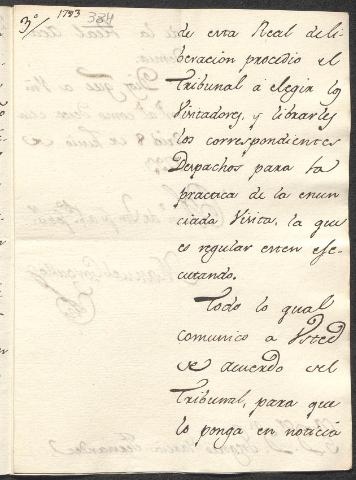 3º 1793 384
de esta Real deli-
beracion procedio el
Tribunal a elegir los
Visitadores, y librarles
los correspondientes
Despachos para la
practica de la enun
ciada Visita, la que
es regular esten ese-
cutando.
Todo lo qual
comunico a Usted
de acuerdo del
Tribunal, para que
lo ponga en noticia